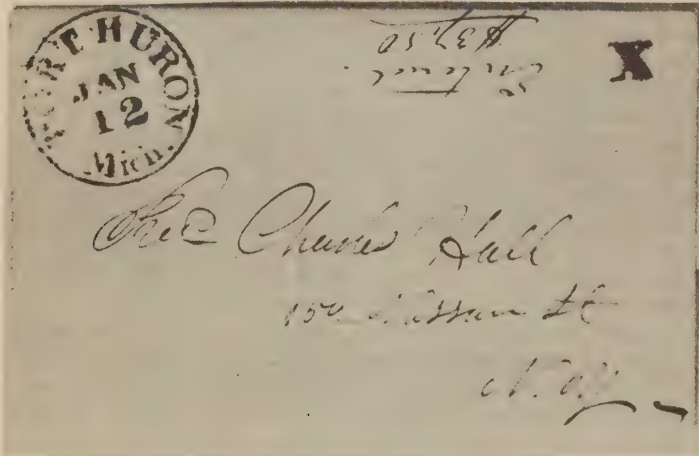 PORT HURON
JAN
12
Mich.
X
$37.50
Rev Charles Hall
150 Nassau St
N. Y.